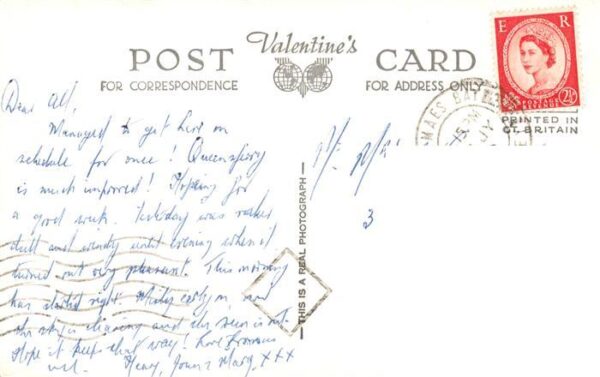 POST Valentine's CARD
FOR CORRESPONDENCE FOR ADDRESS ONLY
E R
2½
PRINTED IN
GT. BRITAIN
MAES
PM
THIS IS A REAL PHOTOGRAPH
Dear Alf,
Managed to get here on
schedule for once! Queensferry
is much improved! Hoping for
a good week. Yesterday was rather
dull and windy until evening when it
turned out very pleasant. This morning
has started right. Misty early on, now
the sky is clearing and the sun is out.
Hope it keeps that way! Love from us
Henry, Joan & Mary. XXX
3